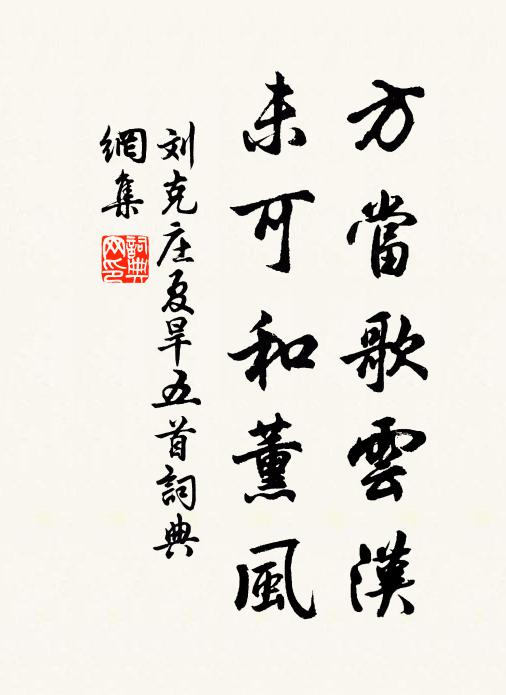 方當歌雲漢
未可和薰風
刘克庄夏旱五首詞典
網集
詞典
网印